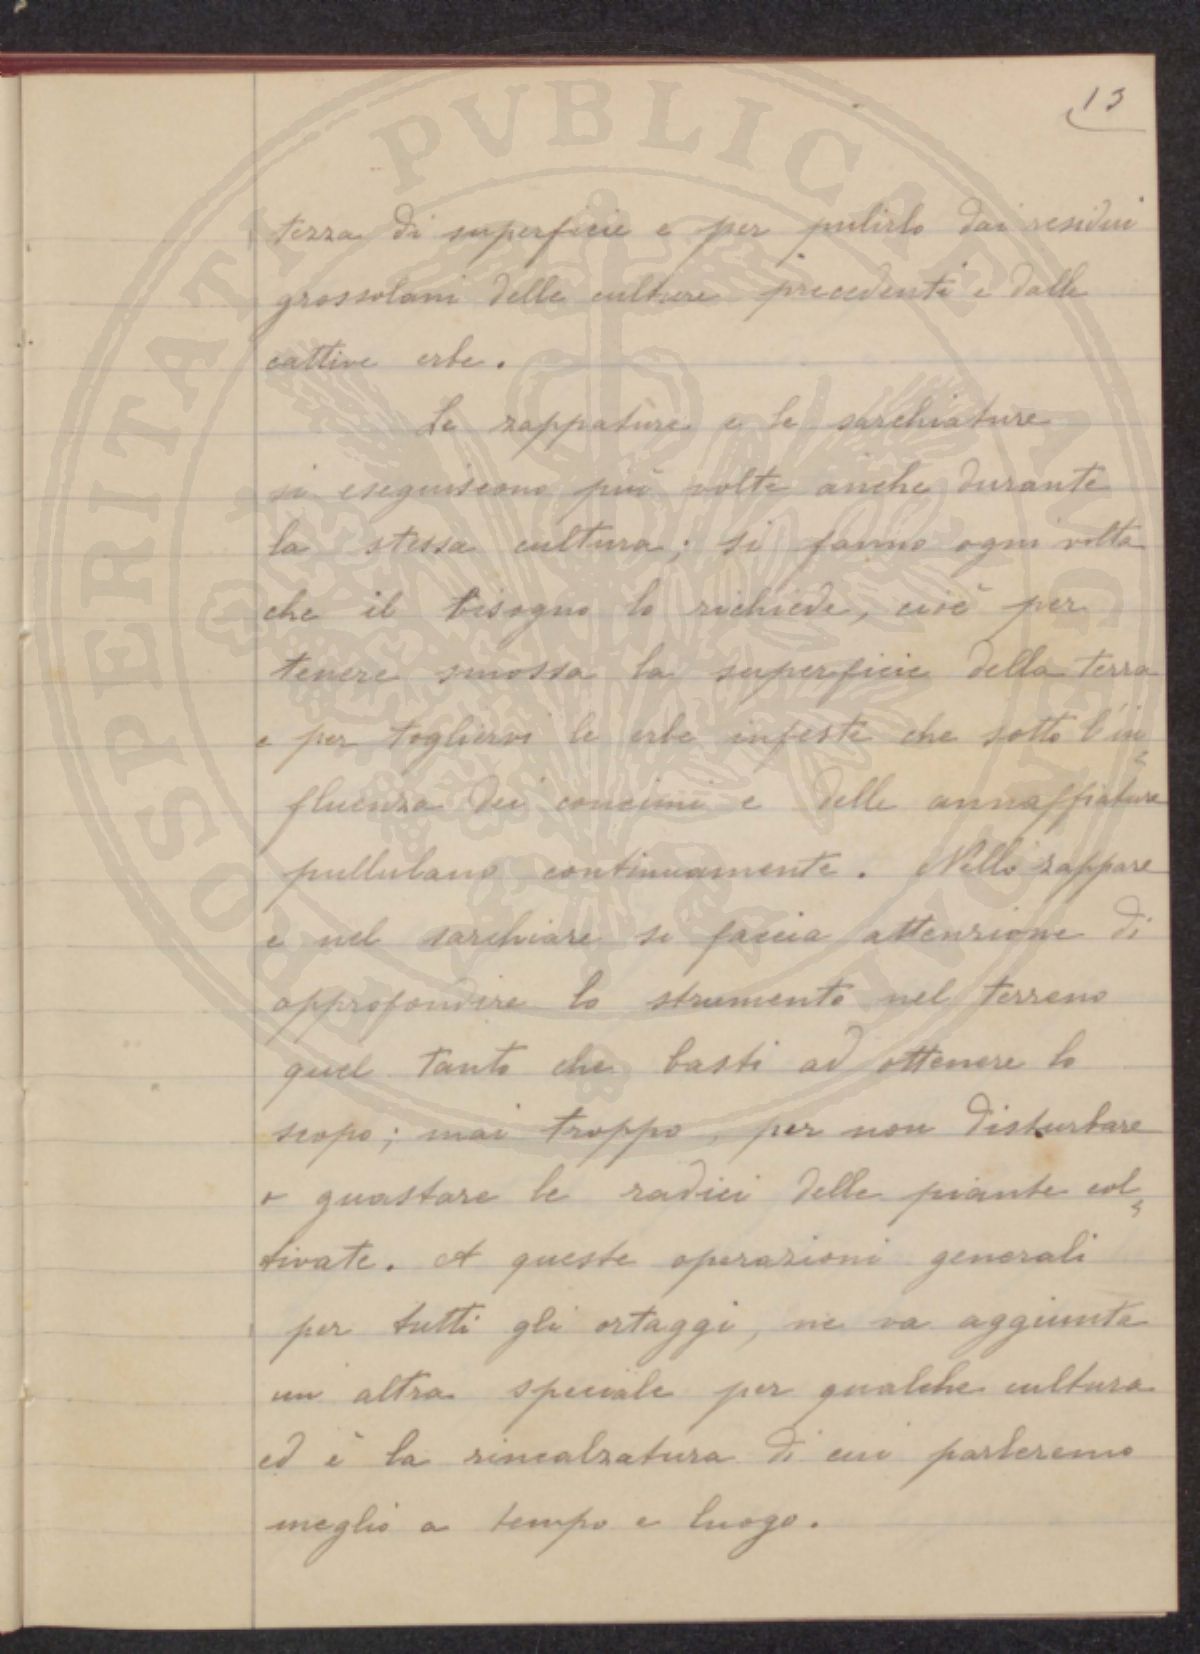 13
tezza di superficie e per pulirlo dai residui
grossolani delle culture precedenti e dalle
cattive erbe.
Le zappature e le sarchiature
si eseguiscono più volte anche durante
la stessa cultura; si fanno ogni volta
che il bisogno lo richiede, cioè per
tenere smossa la superficie della terra
e per togliervi le erbe infeste che sotto l'in=
fluenza dei concimi e delle annaffiature
pullulano continuamente. Nello zappare
e nel sarchiare si faccia attenzione di
approfondire lo strumento nel terreno
quel tanto che basti ad ottenere lo
scopo; mai troppo, per non disturbare
o guastare le radici delle piante col=
tivate. A queste operazioni generali
per tutti gli ortaggi, ne va aggiunta
un altra speciale per qualche cultura
ed è la rincalzatura di cui parleremo
meglio a tempo e luogo.
PROSPERITATI PVBLICAE AVGENDAE